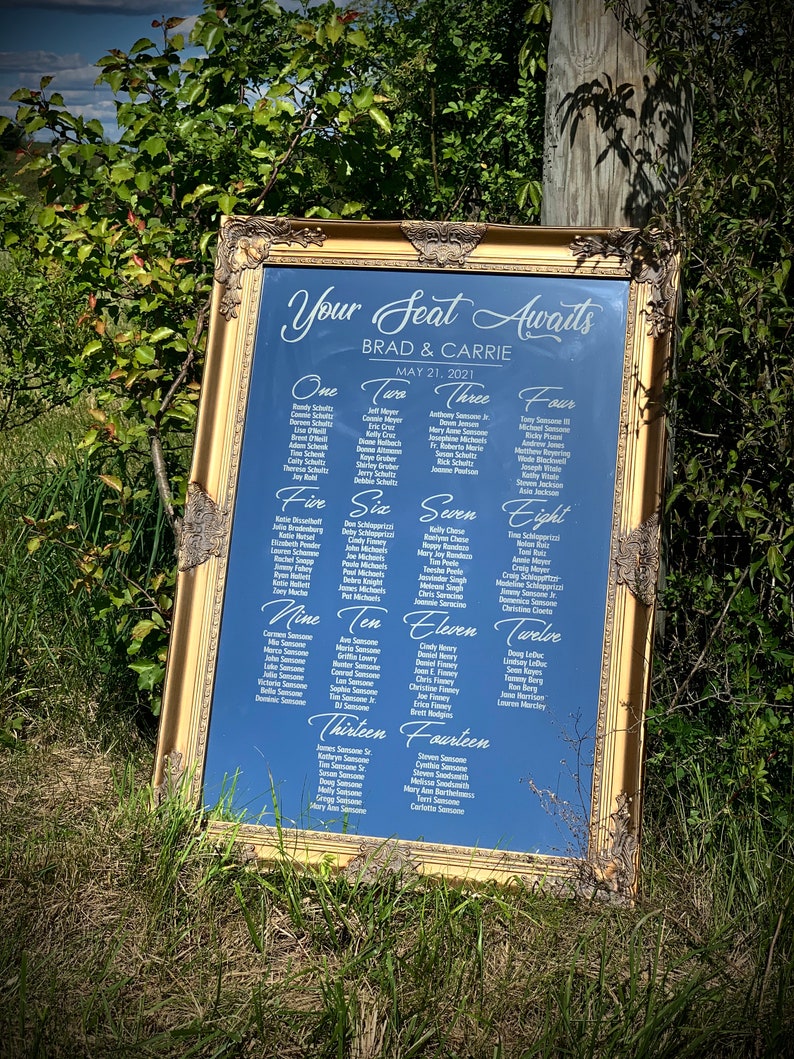 Your Seat Awaits
BRAD & CARRIE
MAY 21, 2021
One
Randy Schultz
Connie Schultz
Doreen Schultz
Lisa O'Neill
Brent O'Neill
Adam Schenk
Tina Schenk
Caity Schultz
Theresa Schultz
Jay Rahl
Two
Jeff Meyer
Connie Meyer
Eric Cruz
Kelly Cruz
Diane Halbach
Donna Altmann
Kaye Gruber
Shirley Gruber
Jerry Schultz
Debbie Schultz
Three
Anthony Sansone Jr.
Dawn Jensen
Mary Anne Sansone
Josephine Michaels
Fr. Roberto Marie
Susan Schultz
Rick Schultz
Joanne Paulson
Four
Tony Sansone III
Michael Sansone
Ricky Pisani
Andrew Jones
Matthew Reyering
Wade Blackwell
Joseph Vitale
Kathy Vitale
Steven Jackson
Asia Jackson
Five
Katie Disselhoff
Julia Bradenburg
Katie Hutsel
Elizabeth Pender
Lauren Schamne
Rachel Snapp
Jimmy Fahey
Ryan Hallett
Katie Hallett
Zoey Mucha
Six
Don Schlapprizzi
Deby Schlapprizzi
Cindy Finney
John Michaels
Joe Michaels
Paula Michaels
Paul Michaels
Debra Knight
James Michaels
Pat Michaels
Seven
Kelly Chase
Raelynn Chase
Hoppy Randazo
Mary Joy Randazo
Tim Peele
Teesha Peele
Jasvindar Singh
Meleoni Singh
Chris Saracino
Jonnie Saracino
Eight
Tina Schlapprizzi
Nolan Ruiz
Toni Ruiz
Annie Mayer
Craig Mayer
Craig Schlapprizzi
Madeline Schlapprizzi
Jimmy Sansone Jr.
Domenica Sansone
Christina Cioeta
Nine
Carmen Sansone
Mia Sansone
Marco Sansone
John Sansone
Luke Sansone
Julia Sansone
Victoria Sansone
Bella Sansone
Dominic Sansone
Ten
Ava Sansone
Maria Sansone
Griffin Lowry
Hunter Sansone
Conrad Sansone
Lan Sansone
Sophia Sansone
Tim Sansone Jr.
DJ Sansone
Eleven
Cindy Henry
Daniel Henry
Daniel Finney
Joan E. Finney
Chris Finney
Christine Finney
Joe Finney
Erica Finney
Brett Hodgins
Twelve
Doug LeDuc
Lindsay LeDuc
Sean Kayes
Tammy Berg
Ron Berg
Jana Harrison
Lauren Marcley
Thirteen
James Sansone Sr.
Kathryn Sansone
Tim Sansone Sr.
Susan Sansone
Doug Sansone
Molly Sansone
Gregg Sansone
Mary Ann Sansone
Fourteen
Steven Sansone
Cynthia Sansone
Steven Snodsmith
Melissa Snodsmith
Mary Ann Barthelmass
Terri Sansone
Carlotta Sansone